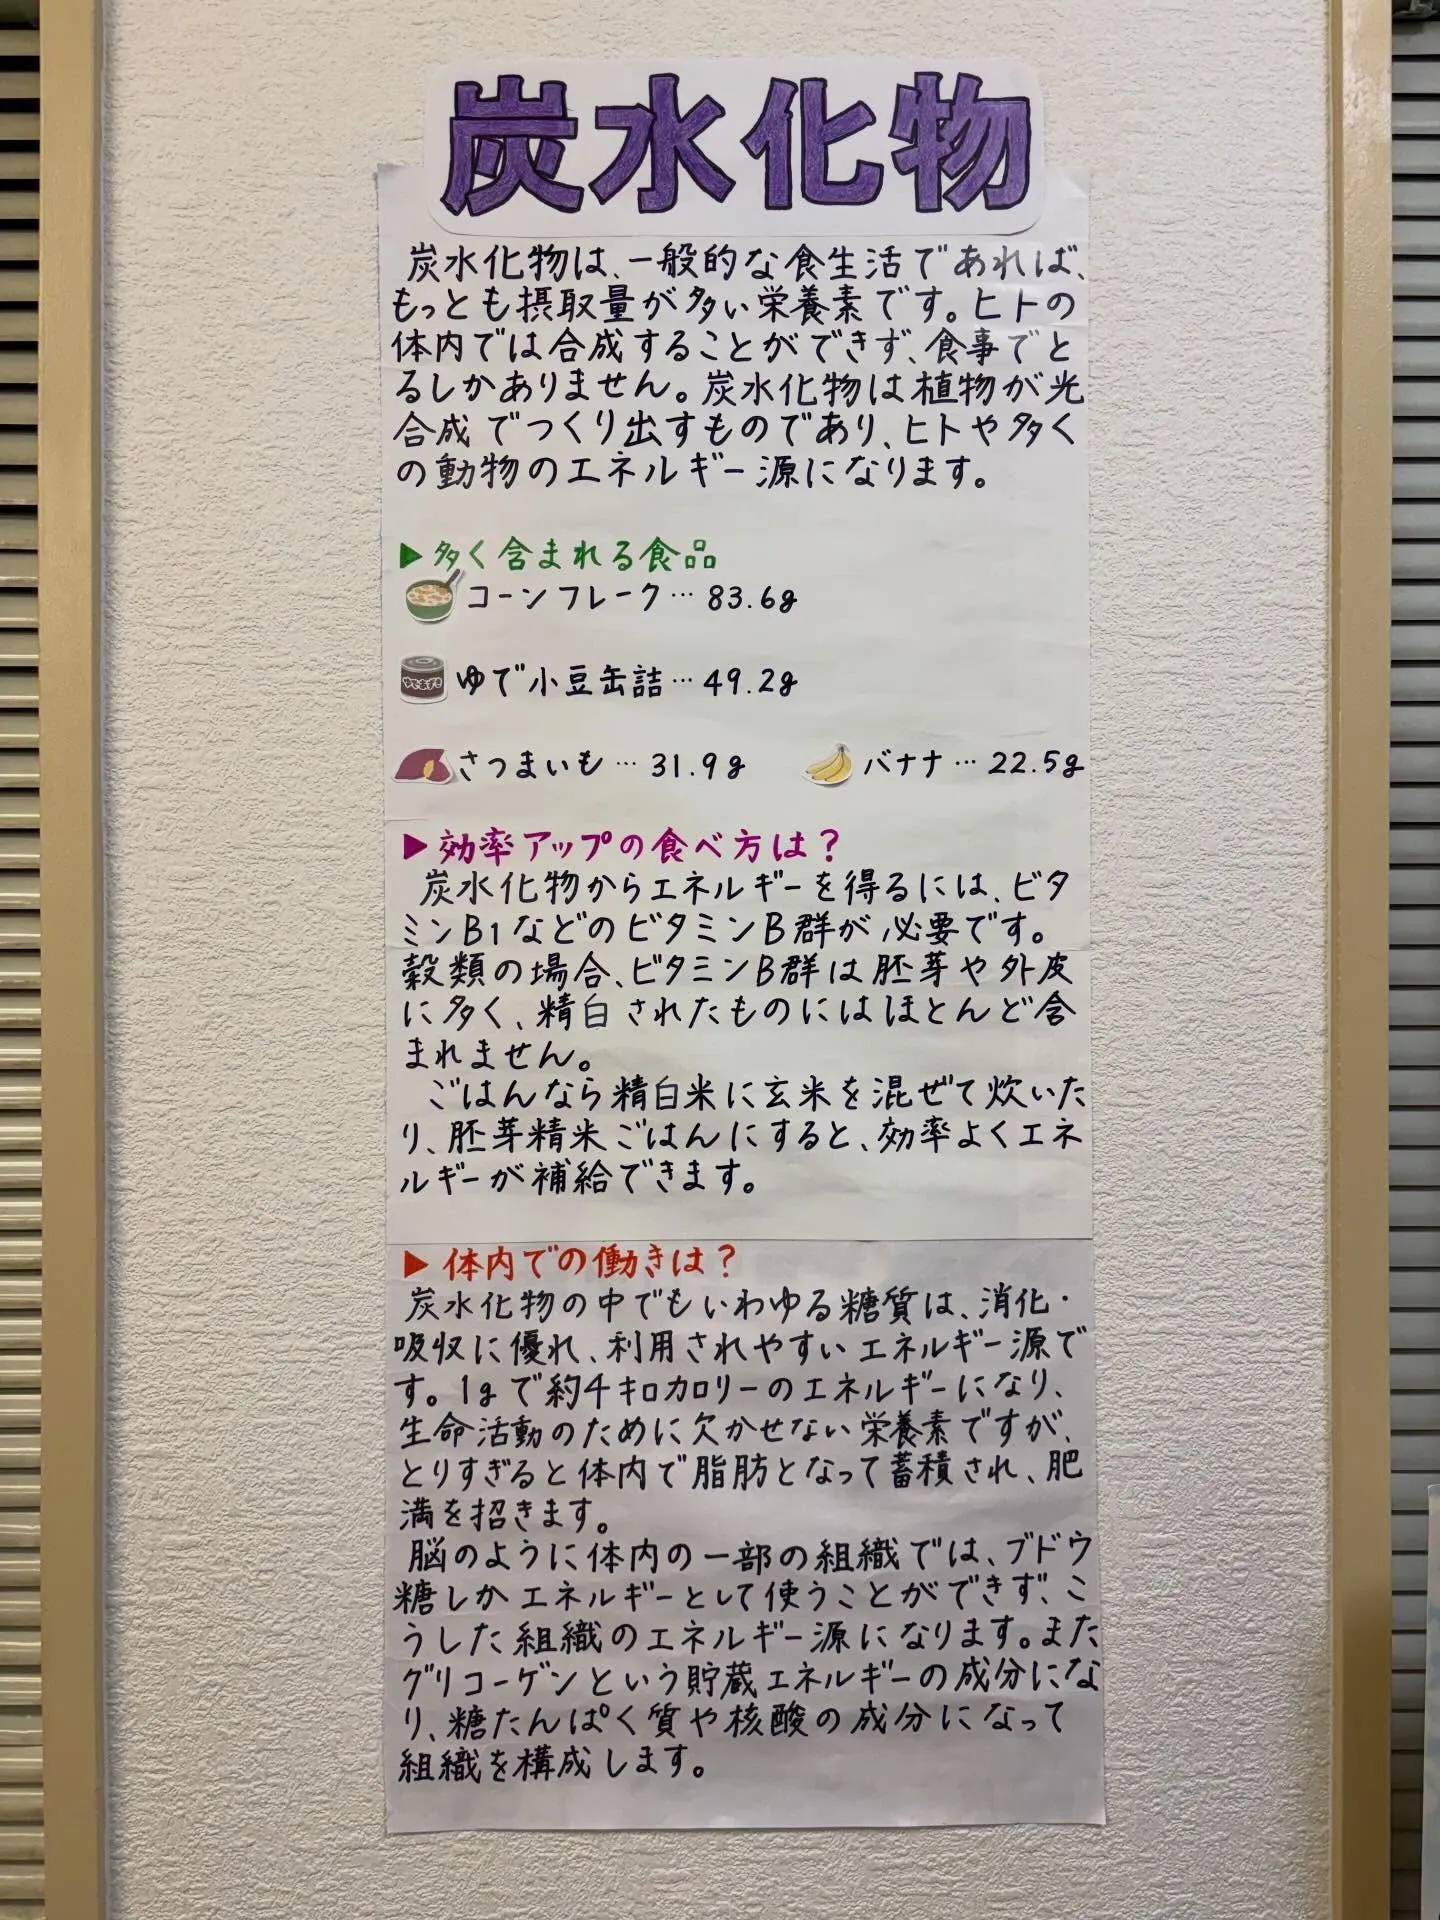 炭水化物
炭水化物は、一般的な食生活であれば、
もっとも摂取量が多い栄養素です。ヒトの
体内では合成することができず、食事でと
るしかありません。炭水化物は植物が光
合成でつくり出すものであり、ヒトや多く
の動物のエネルギー源になります。
▶多く含まれる食品
コーンフレーク…83.6g
ゆであずき
ゆで小豆缶詰…49.2g
さつまいも…31.9g バナナ…22.5g
▶効率アップの食べ方は?
炭水化物からエネルギーを得るには、ビタ
ミンB1などのビタミンB群が必要です。
穀類の場合、ビタミンB群は胚芽や外皮
に多く、精白されたものにはほとんど含
まれません。
ごはんなら精白米に玄米を混ぜて炊いた
り、胚芽精米ごはんにすると、効率よくエネ
ルギーが補給できます。
▶体内での働きは?
炭水化物の中でもいわゆる糖質は、消化・
吸収に優れ、利用されやすいエネルギー源で
す。1gで約4キロカロリーのエネルギーになり、
生命活動のために欠かせない栄養素ですが、
とりすぎると体内で脂肪となって蓄積され、肥
満を招きます。
脳のように体内の一部の組織では、ブドウ
糖しかエネルギーとして使うことができず、こ
うした組織のエネルギー源になります。また
グリコーゲンという貯蔵エネルギーの成分にな
り、糖たんぱく質や核酸の成分になって
組織を構成します。